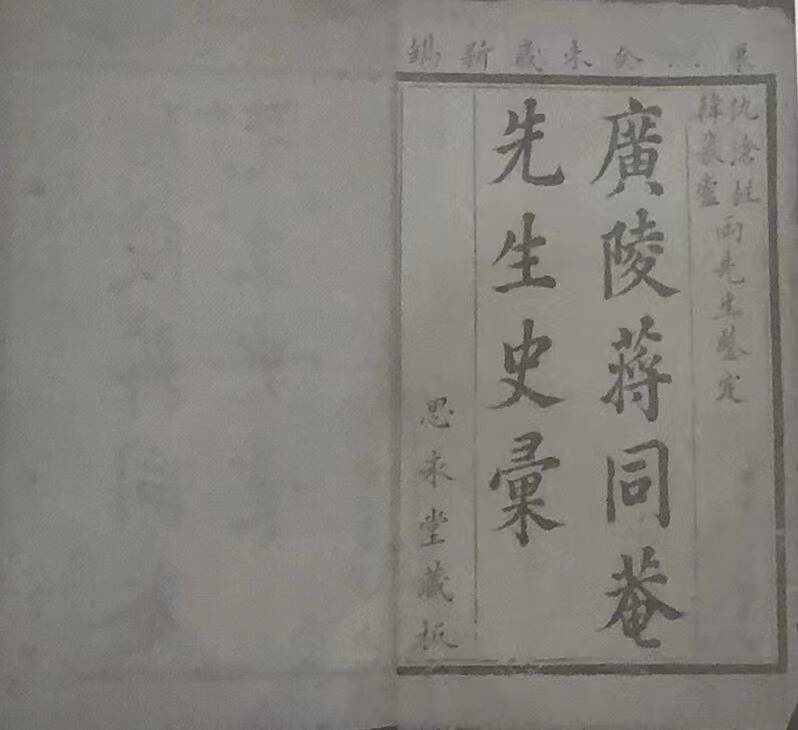 未歲新鐫
仇滄柱
韓慕廬
兩先生鑒定
廣陵蔣同菴
先生史彙
思永堂藏板